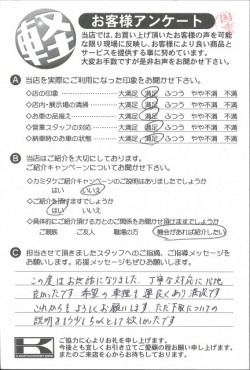 軽
お客様アンケート
当店では、お買い上げ頂いたお客様の声を可能
な限り現場に反映し、お客様により良い商品と
サービスを提供する事に努めています。
大変お手数ですが是非お声をお聞かせ下さい。
A 当店を実際にご利用になった印象をお聞かせ下さい。
◇店の印象 大満足 満足 ふつう やや不満 不満
◇店内・展示場の清掃 大満足 満足 ふつう やや不満 不満
◇お車の品揃え 大満足 満足 ふつう やや不満 不満
◇営業スタッフの対応 大満足 満足 ふつう やや不満 不満
◇納車時のお車の状態 大満足 満足 ふつう やや不満 不満
B 当店はご紹介を大切にしております。
ご紹介キャンペーンについてお聞かせ下さい。
◇カミタケご紹介キャンペーンのご説明はありましたでしょうか
はい いいえ
◇ご紹介を頂けますでしょうか
はい いいえ
◇具体的にご紹介頂ける方とのご関係をお聞かせ頂けますでしょうか
ご親族 ご友人 職場の方 機会があれば紹介したい
C 担当させて頂きましたスタッフへのご指摘、ご指導メッセージを
お願いします。応援メッセージもぜひお願いします。
この度はお世話になりました。丁寧な対応に
良かったです。希望の車種も運よくあり満足です
これからもよろしくお願いします。ただ下取についての
説明をもう少しちゃんとして欲しかったです
K
ご協力に心よりお礼を申し上げます。
今後とも宜しくお引き立てご愛顧の程お願い申し上げます。
またのご来店を心からお待ちしております。